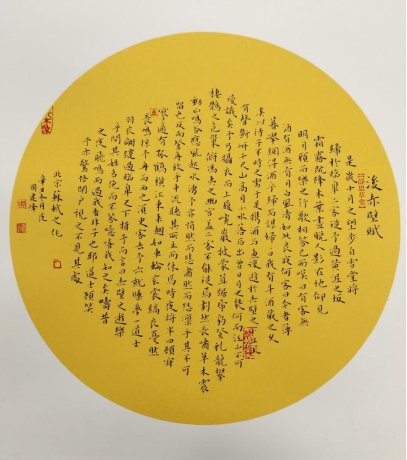 後赤壁賦
是歲十月之望步自雪堂將
歸於臨皋二客從予過黃泥之坂
霜露既降木葉盡脫人影在地仰見
明月顧而樂之行歌相答已而嘆曰有客無
酒有酒無肴月白風清如此良夜何客曰今者薄
暮舉網得魚歸而謀諸婦婦曰我有斗酒藏之久
矣以待子不時之需於是攜酒與魚復遊於赤壁之下江流
有聲斷岸千尺山高月小水落石出曾日月之幾何而江山不可
復識矣予乃攝衣而上履巉巖披蒙茸踞虎豹登虬龍攀
棲鶻之危巢俯馮夷之幽宮蓋二客不能從焉劃然長嘯草木震
動山鳴谷應風起水湧予亦悄然而悲肅然而恐凜乎其不可
留也反而登舟放乎中流聽其所止而休焉時夜將半四顧寂
寥適有孤鶴橫江東來翅如車輪玄裳縞衣戛然
長鳴掠予舟而西也須臾客去予亦就睡夢一道士
羽衣翩躚過臨皋之下揖予而言曰赤壁之遊樂
乎問其姓名俛而不答嗚呼噫嘻我知之矣疇昔
之夜飛鳴而過我者非子也耶道士顧笑
予亦驚悟開戶視之不見其處
北宋蘇軾之作
辛丑冬月
周建